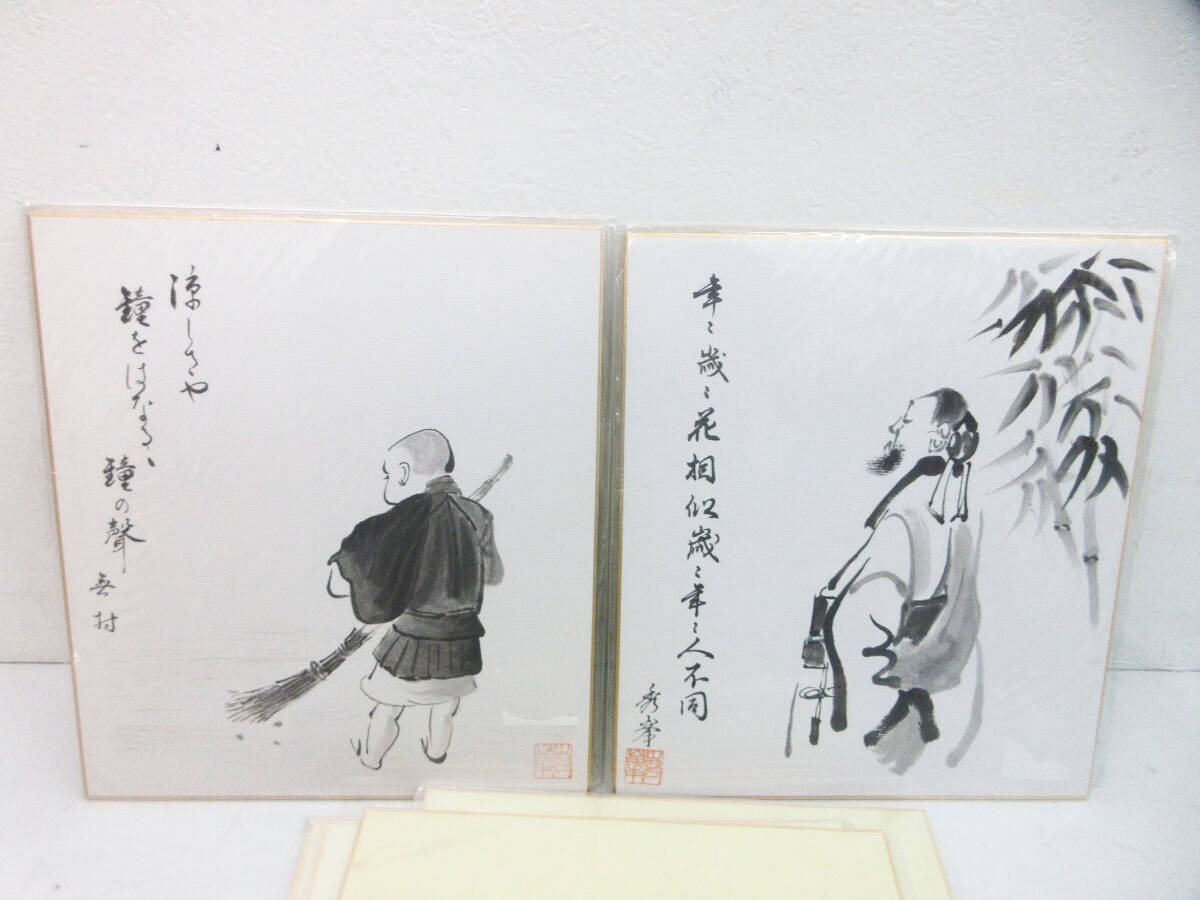 涼しさや
鐘をはなるゝ
鐘の聲
蕪村
年々歳々花相似歳々年々人不同
秀峯